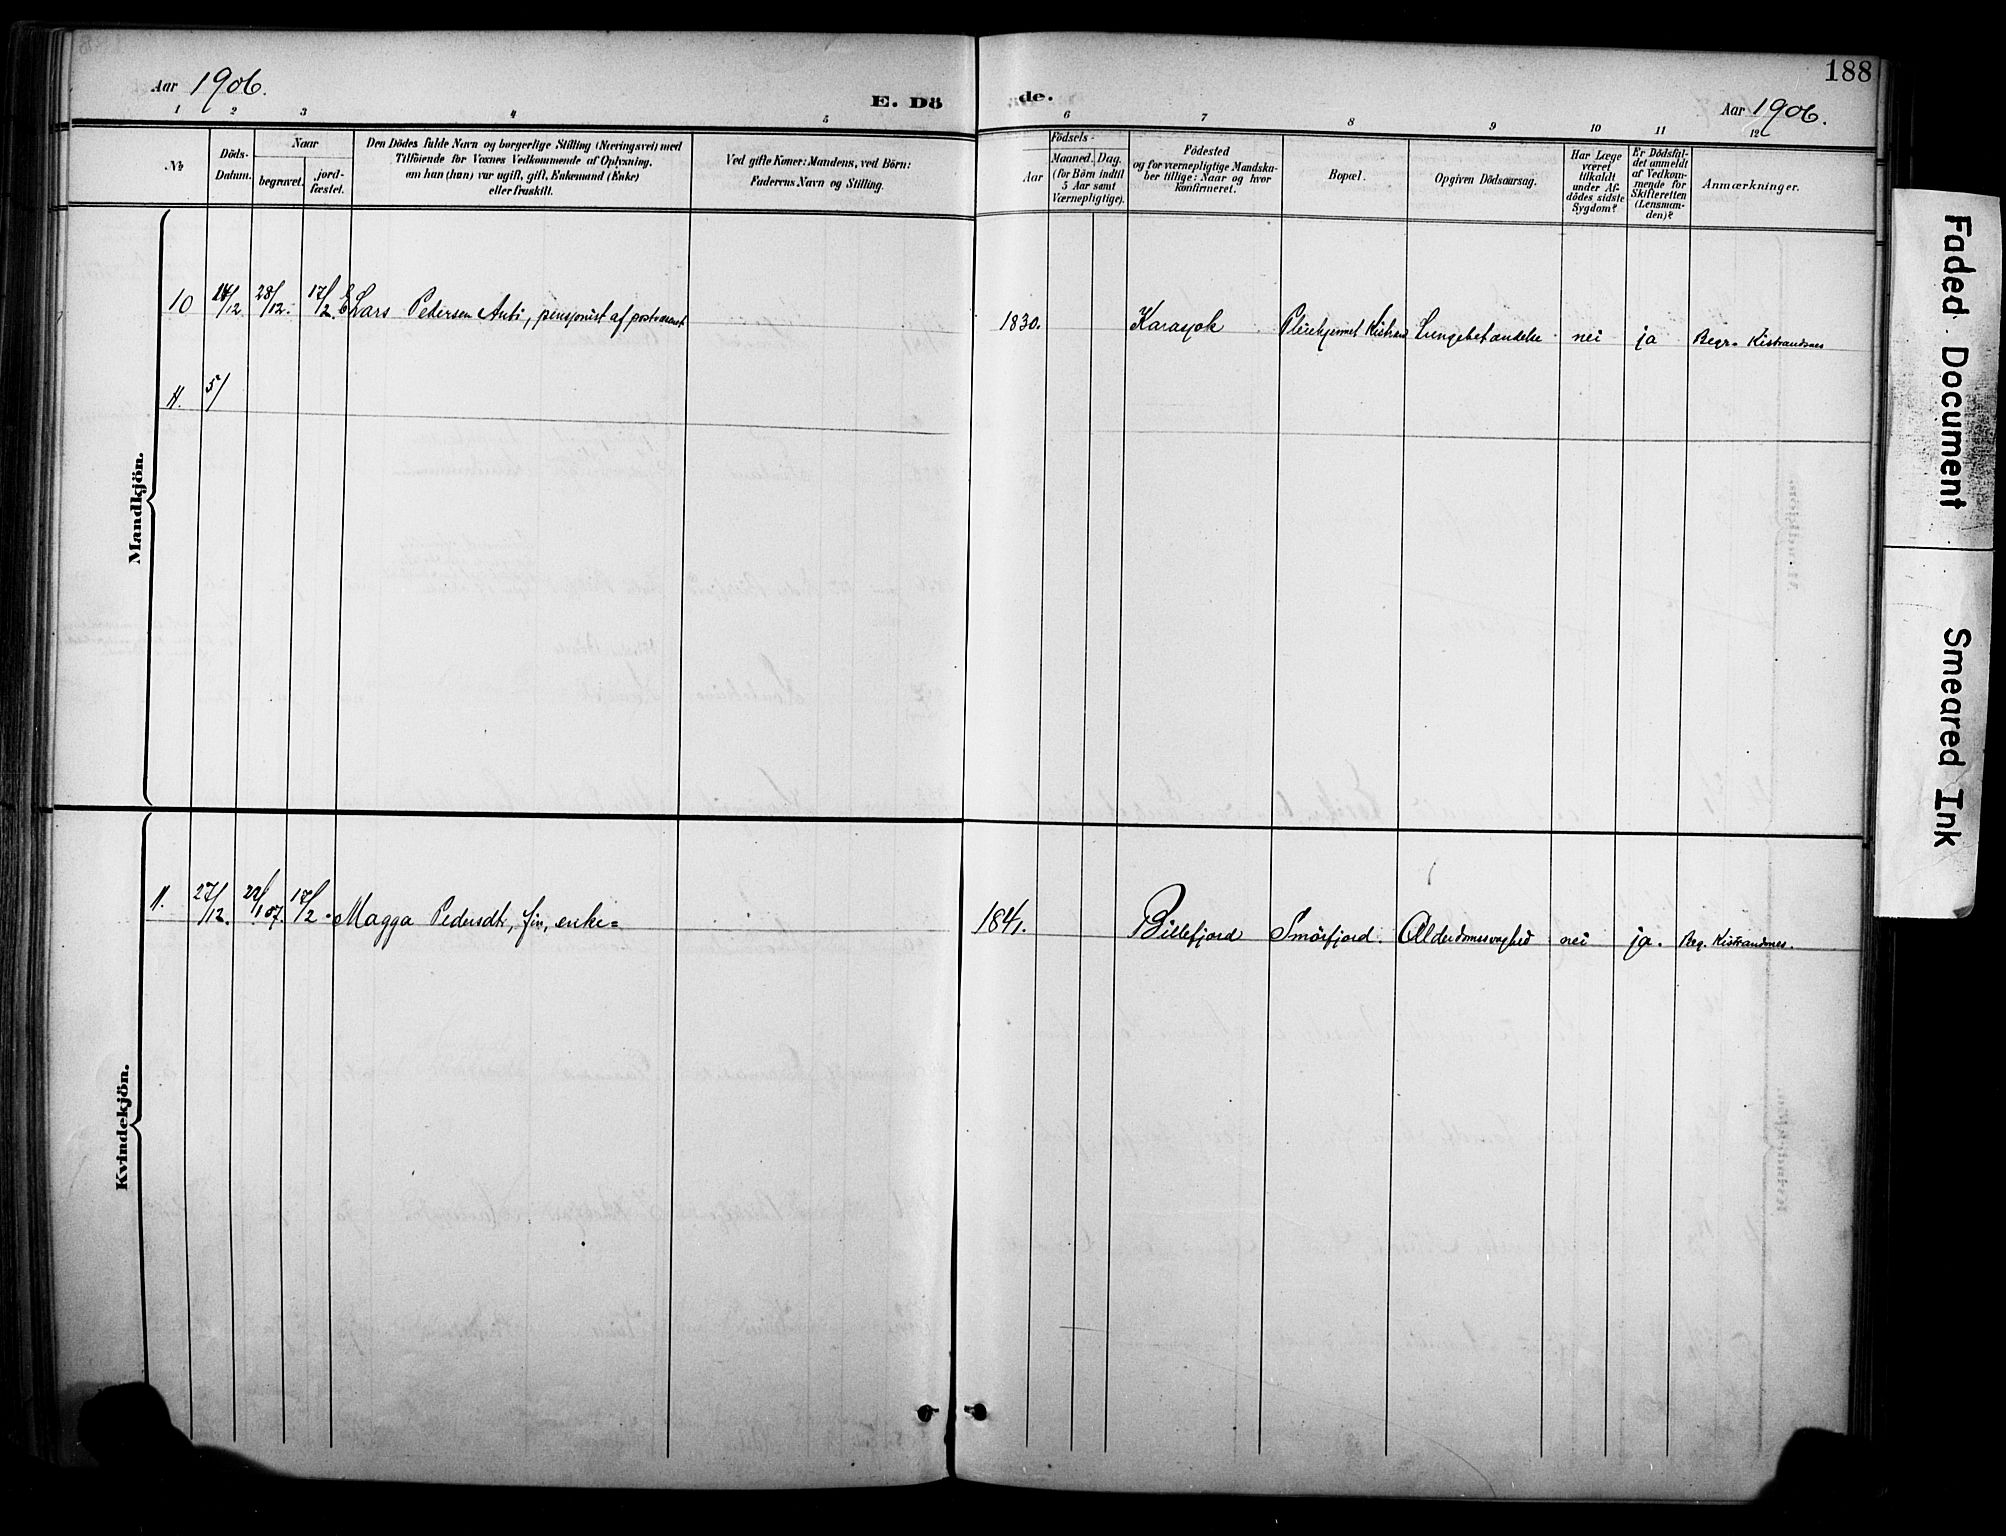 188
Aar 1906.
E. Döde.
Aar 1906.
1 2 3 4 5 6 7 8 9 10 11 12
No
Döds-Datum.
Naar
begravet.
jord-fæstet.
Den Dödes fulde Navn og borgerlige Stilling (Næringsvei) med
Tilföiende for Voxnes Vedkommende af Oplysning,
om han (hun) var ugift, gift, Enkemand (Enke)
eller fraskilt.
Ved gifte Koner: Mandens, ved Börn:
Faderens Navn og Stilling.
Födsels-
Aar
Maaned. Dag.
(for Börn indtil
5 Aar samt
Værnepligtige).
Födested
og for værnepligtige Mandska-
ber tillige: Naar og hvor
konfirmeret.
Bopæl.
Opgiven Dödsaarsag.
Har Læge
været
tilkaldt
under Af-
dödes sidste
Sygdom?
Er Dödsfal-
det anmeldt
af Vedkom-
mende for
Skifteretten
(Lensman-
den)?
Anmærkninger.
Mandkjön.
10 14/12 28/12. 17/2. Lars Pedersen Anti, pensjonist af postvæsenet 1830. Karasjok Pleiehjemmet Kistrand Lungebetændelse nei ja Begr. Kistrandnes
11. 5/
Kvindekjön.
11. 27/12. 22/1 07. 17/2. Magga Pedersdtr, fin, enke= 1841. Billefjord Smörfjord. Alderdomssvaghed nei ja. Beg. Kistrandnes.
Faded Document
Smeared Ink